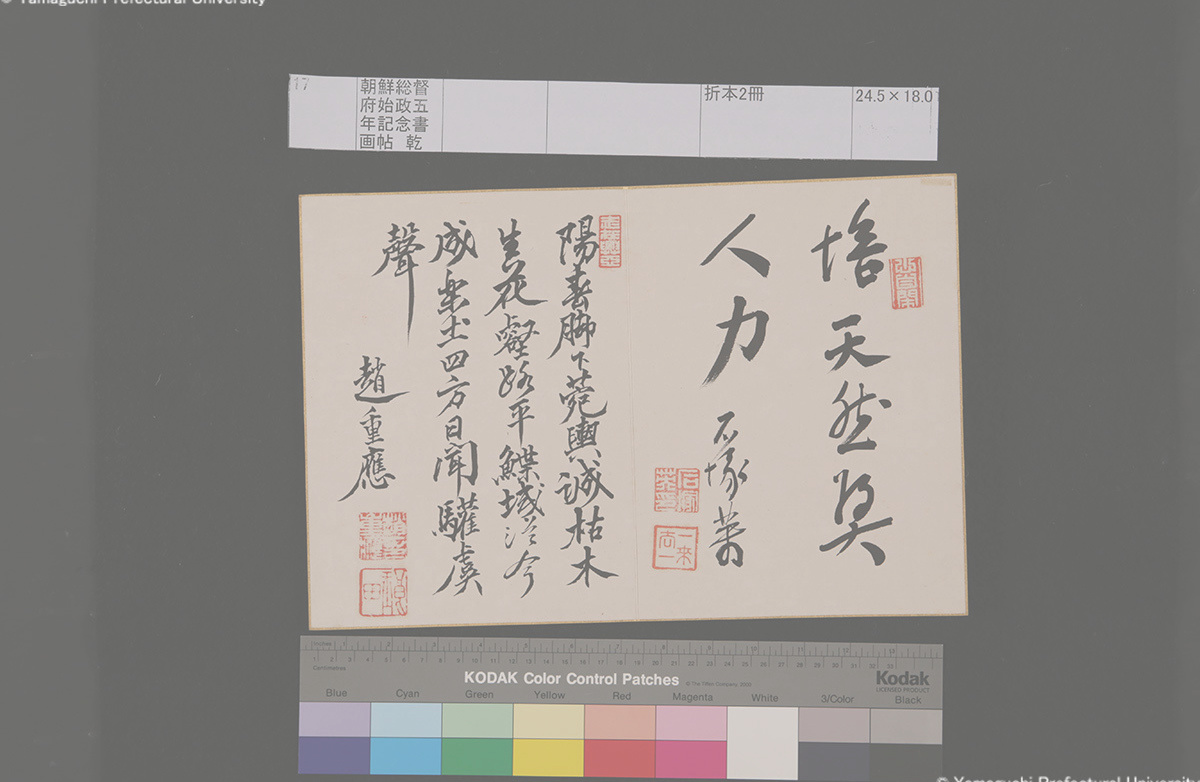 © Yamaguchi Prefectural University
17
朝鮮総督
府始政五
年記念書
画帖 乾
折本2冊
24.5×18.0
培天然奨
人力 石塚英
陽春脚下菀輿誠枯木
生花壑路平鰈域従今
成楽土四方日聞驩虞
聲
趙重應
Inches
Centimetres
KODAK Color Control Patches
© The Tiffen Company, 2000
Kodak
LICENSED PRODUCT
Blue Cyan Green Yellow Red Magenta White 3/Color Black
© Yamaguchi Prefectural University